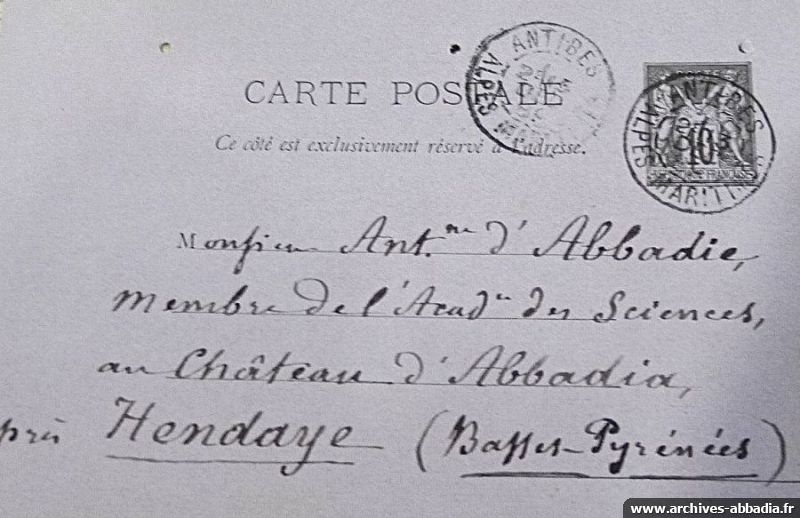 ANTIBES
ALPES
CARTE POSTALE
Ce côté est exclusivement réservé à l'adresse.
ANTIBES
ALPES MARITIMES
10
Monsieur Ant.ne d'Abbadie,
membre de l'Acad.ie des Sciences,
au Château d'Abbadia,
près Hendaye (Basses-Pyrénées)
www.archives-abbadia.fr